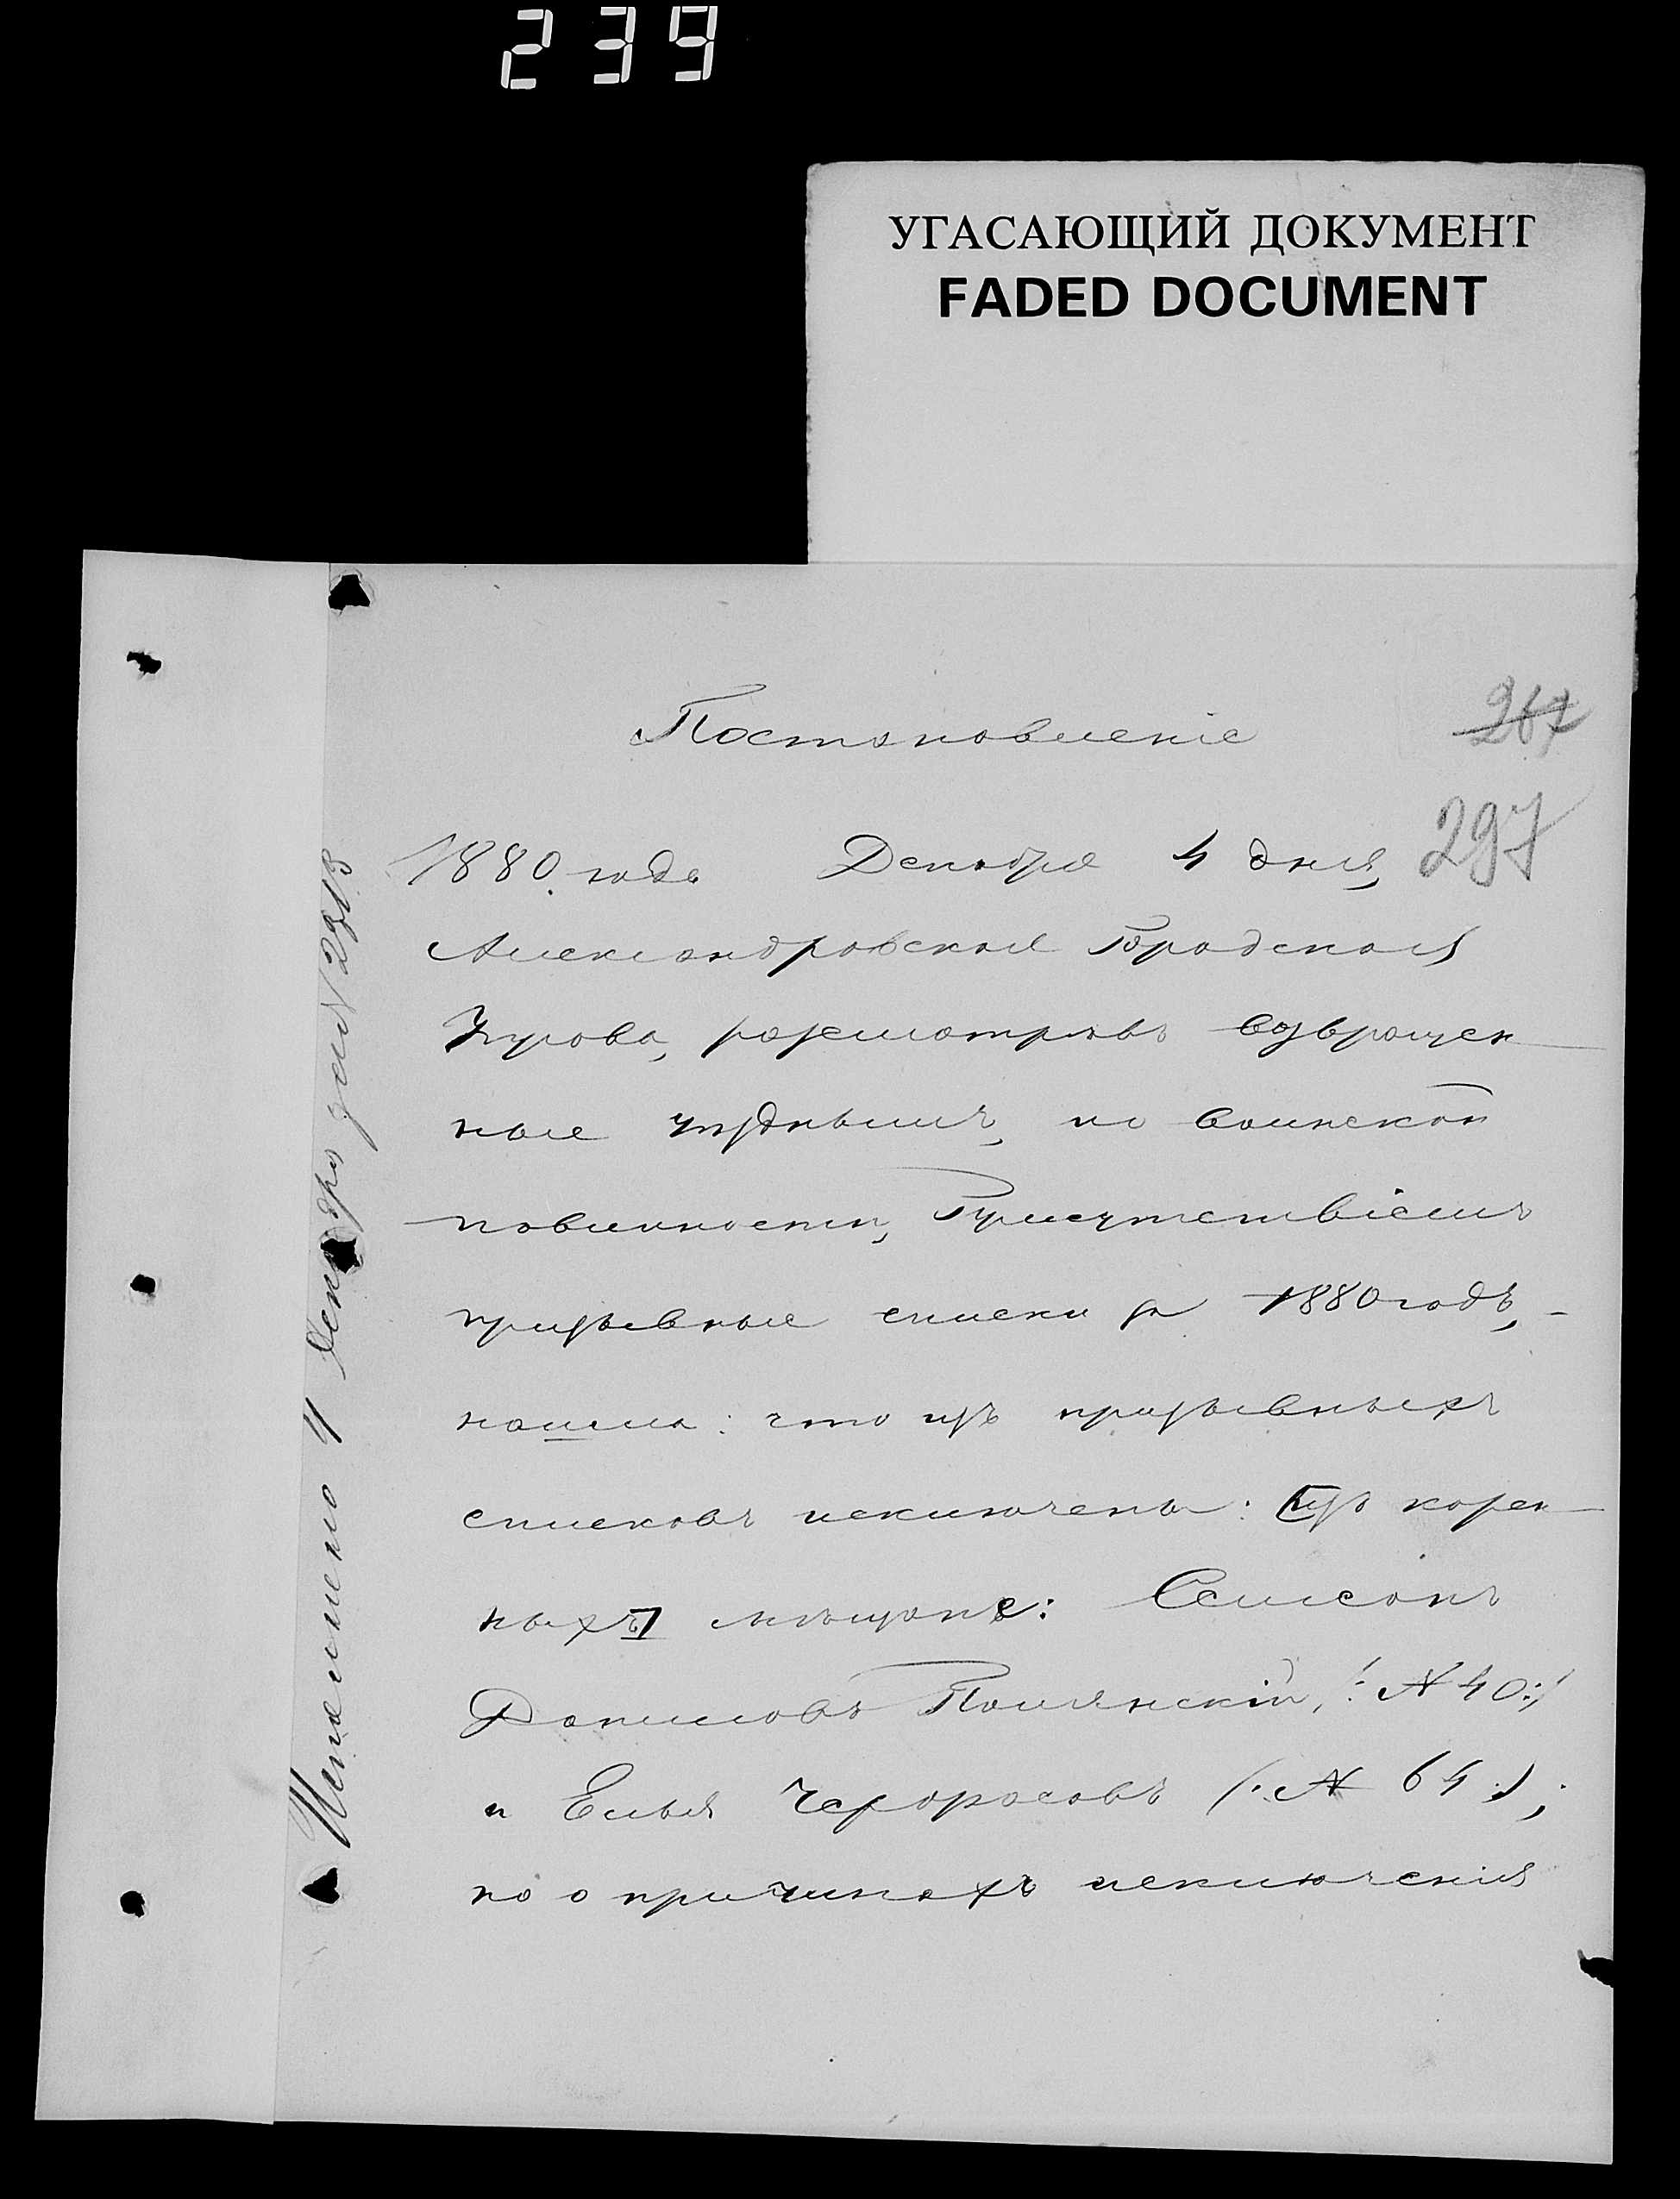 239
УГАСАЮЩИЙ ДОКУМЕНТ
FADED DOCUMENT
Постановленіе
267
297
1880 года Декабря 4 дня,
Александровская Городская
Управа, разсмотрѣвъ возвращен
ные уѣзднымъ, по воинской
повинности, Присутствіемъ
призывные списки за 1880 годъ, -
нашла: что изъ призывныхъ
списковъ исключены: [изъ корен
ныхъ] мѣщане: Самсонъ
Даниловъ Полянскій, /: № 40:/
и Елья (: № 64 :);
но о причинахъ исключенія
Исполнено 4 Декабря за №